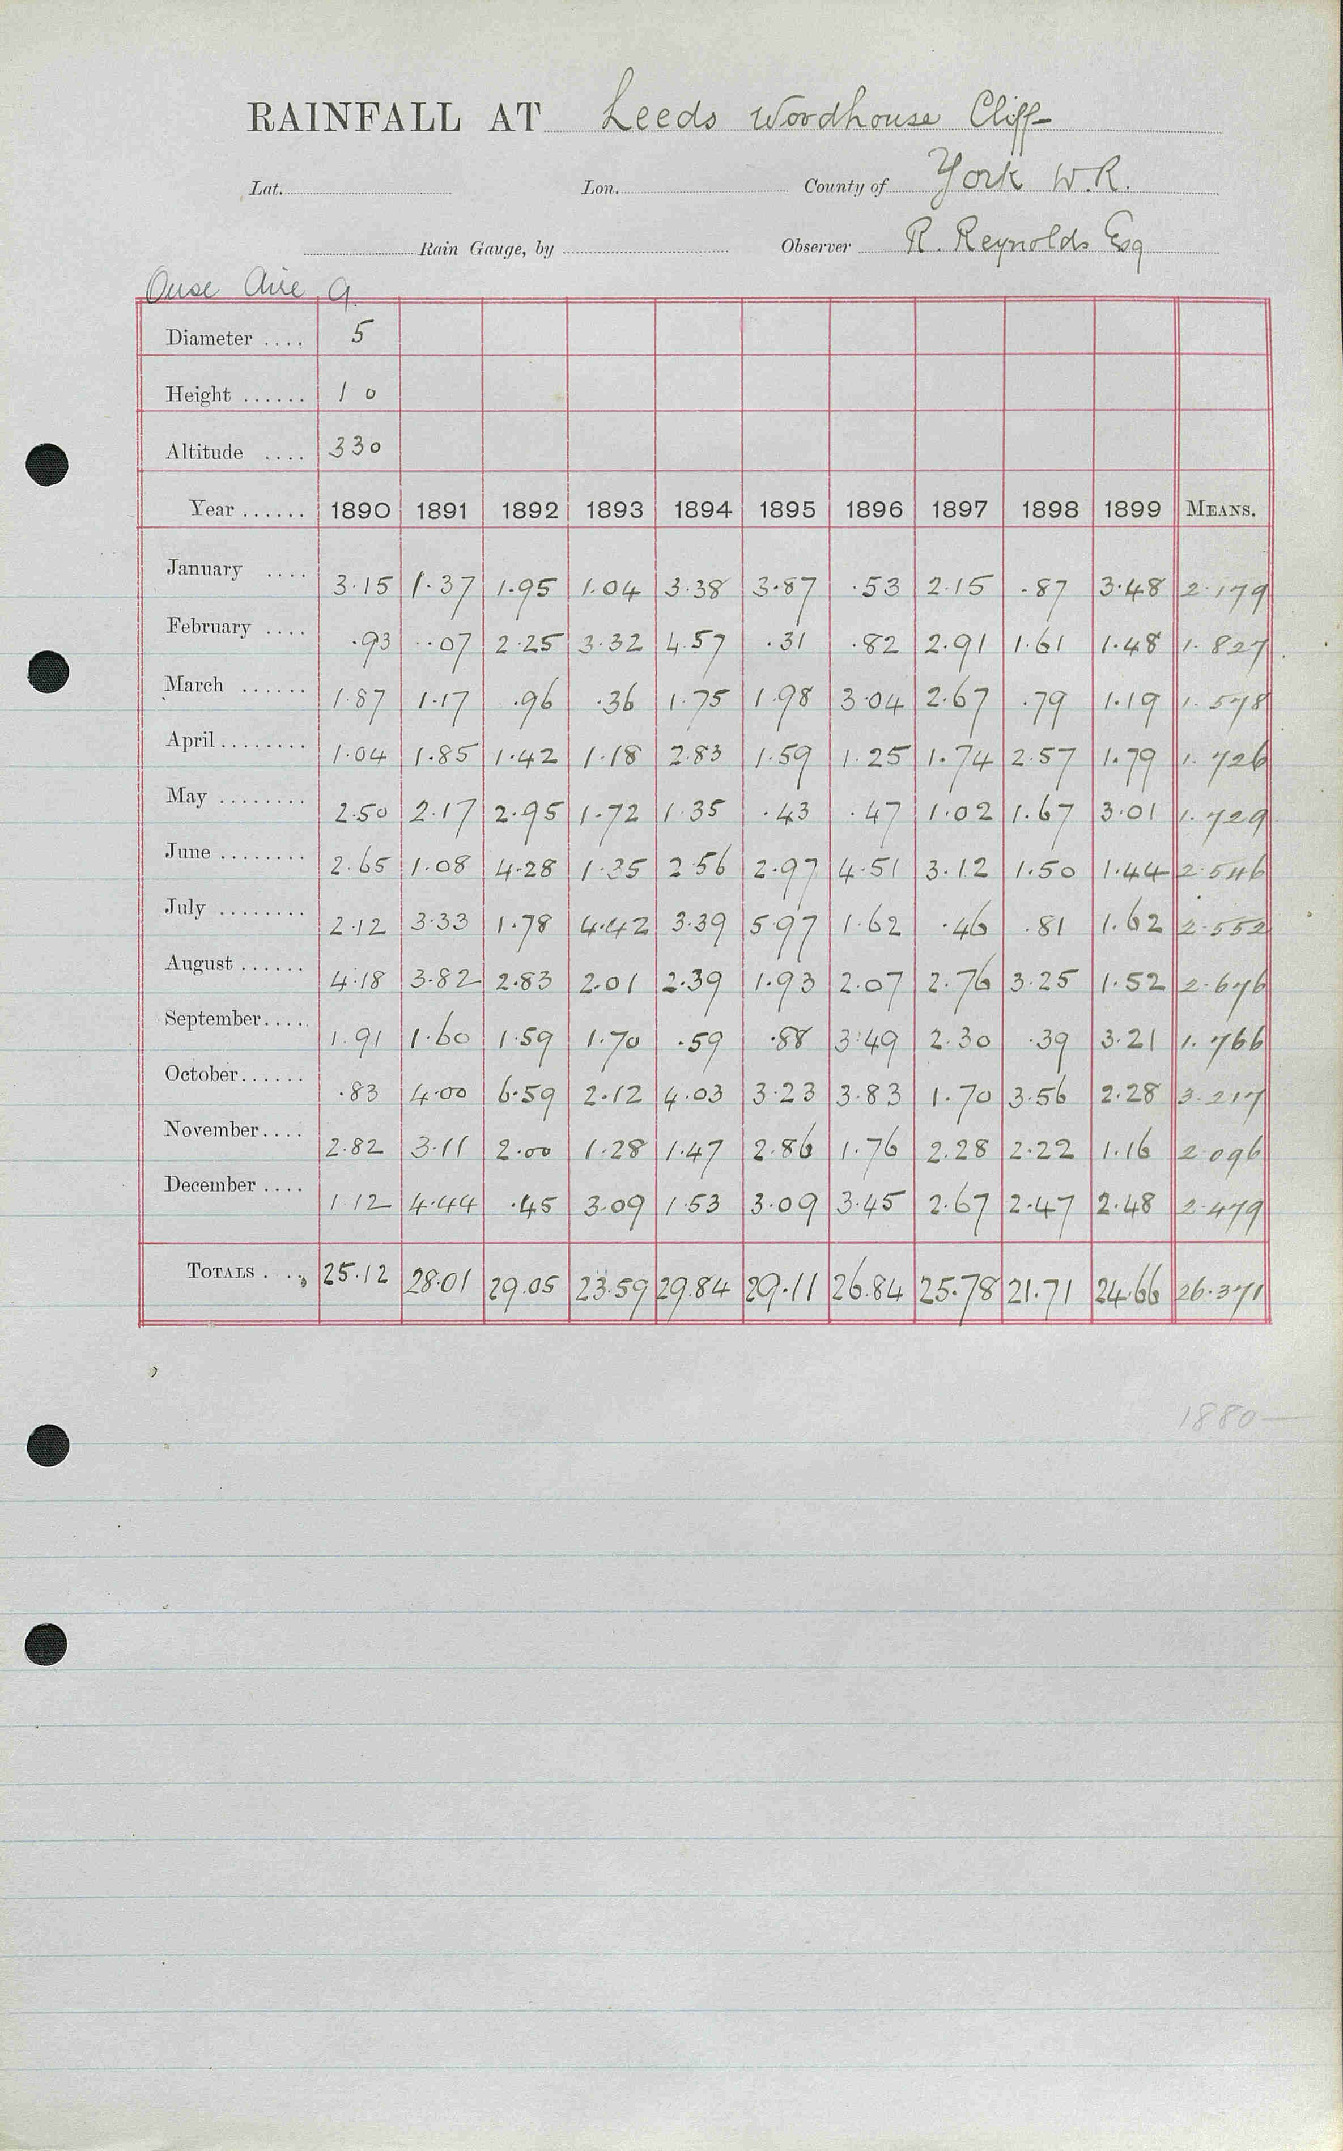 RAINFALL AT Leeds Woodhouse Cliff
Lat. Lon. County of York W.R.
Rain Gauge, by Observer R. Reynolds Esq
Ouse Aire 9.
Diameter .... 5
Height ...... 1 0
Altitude .... 330
Year ...... 1890 1891 1892 1893 1894 1895 1896 1897 1898 1899 MEANS.
January .... 3.15 1.37 1.95 1.04 3.38 3.87 .53 2.15 .87 3.48 2.179
February .... .93 .07 2.25 3.32 4.57 .31 .82 2.91 1.61 1.48 1.827
March ...... 1.87 1.17 .96 .36 1.75 1.98 3.04 2.67 .79 1.19 1.578
April ........ 1.04 1.85 1.42 1.18 2.83 1.59 1.25 1.74 2.57 1.79 1.726
May ........ 2.50 2.17 2.95 1.72 1.35 .43 .47 1.02 1.67 3.01 1.729
June ........ 2.65 1.08 4.28 1.35 2.56 2.97 4.51 3.12 1.50 1.44 2.546
July ........ 2.12 3.33 1.78 4.42 3.39 5.97 1.62 .46 .81 1.62 2.552
August ...... 4.18 3.82 2.83 2.01 2.39 1.93 2.07 2.76 3.25 1.52 2.676
September .... 1.91 1.60 1.59 1.70 .59 .88 3.49 2.30 .39 3.21 1.766
October ...... .83 4.00 6.59 2.12 4.03 3.23 3.83 1.70 3.56 2.28 3.217
November .... 2.82 3.11 2.00 1.28 1.47 2.86 1.76 2.28 2.22 1.16 2.096
December .... 1.12 4.44 .45 3.09 1.53 3.09 3.45 2.67 2.47 2.48 2.479
TOTALS .... 25.12 28.01 29.05 23.59 29.84 29.11 26.84 25.78 21.71 24.66 26.371
1880—